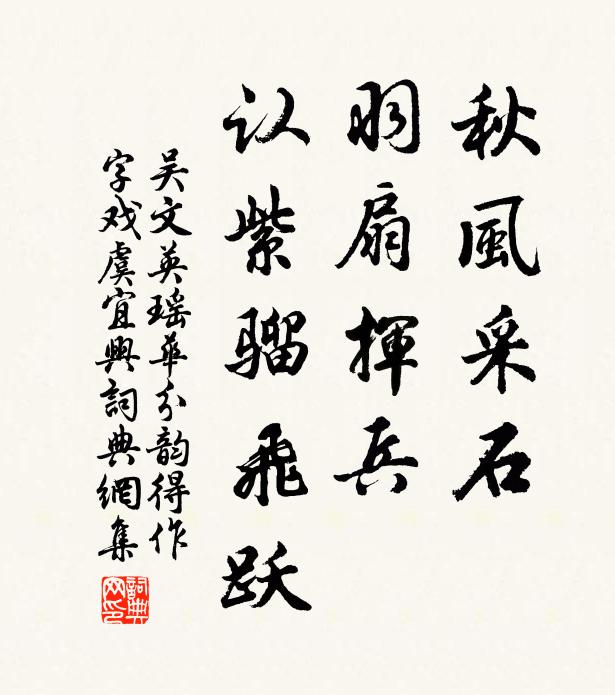 秋風采石
羽扇揮兵
认紫骝飛跃
吴文英瑶华分韵得作
字戏虞宜興詞典網集
詞典网印